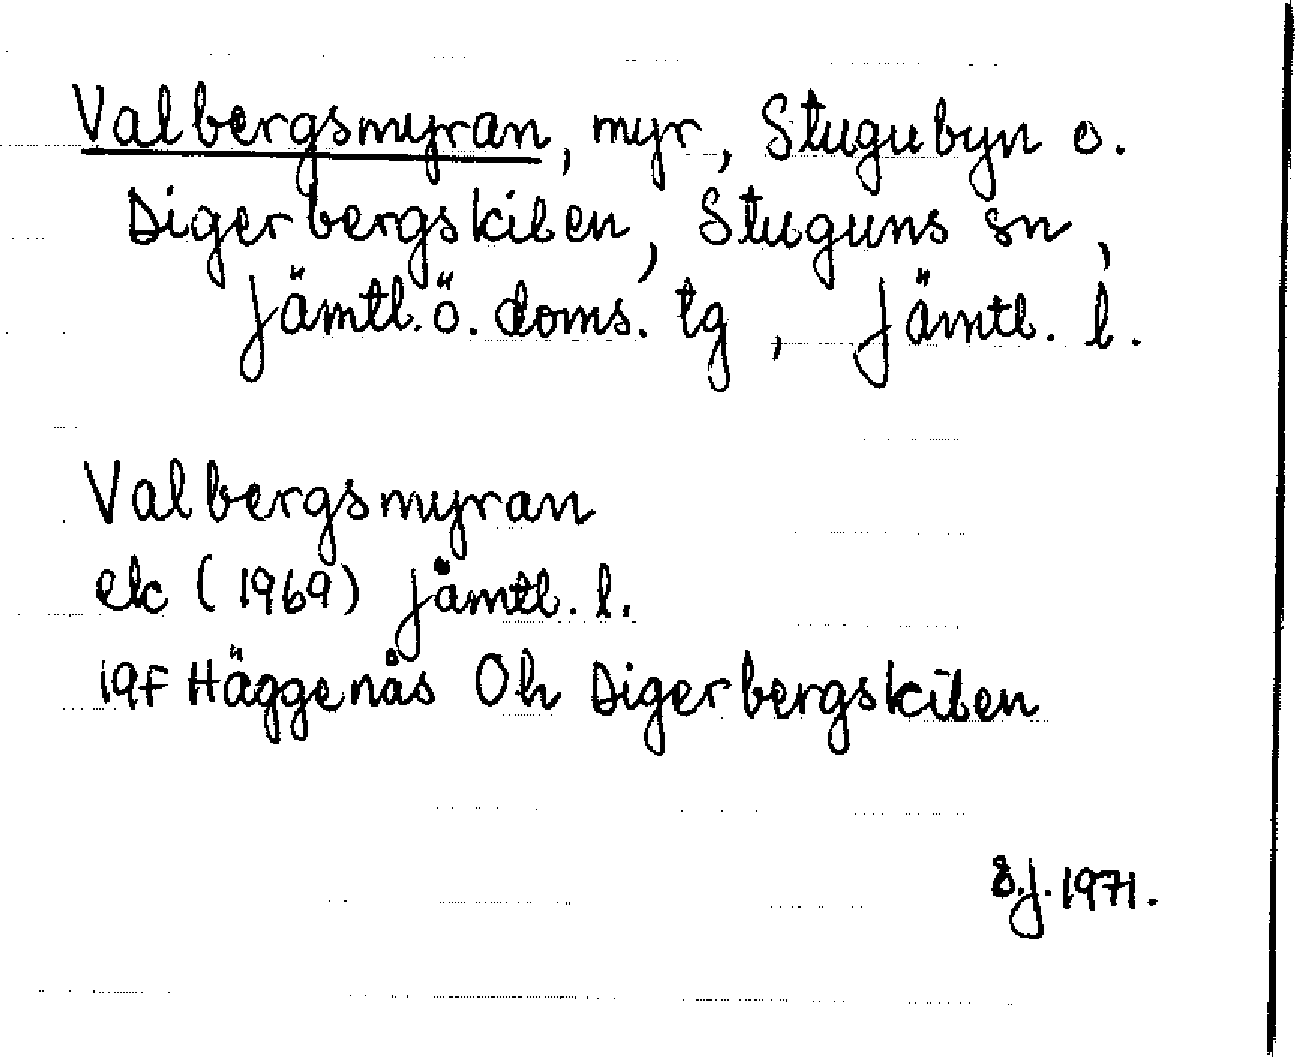 Valbergsmyran, myr, Stugubyn o.
Digerbergskilen, Stuguns sn,
Jämtl. ö. doms. tg, Jämtl. l.
Valbergsmyran
ek (1969) Jämtl. l.
19F Häggenås Öh Digerbergskilen
S.J. 1971.